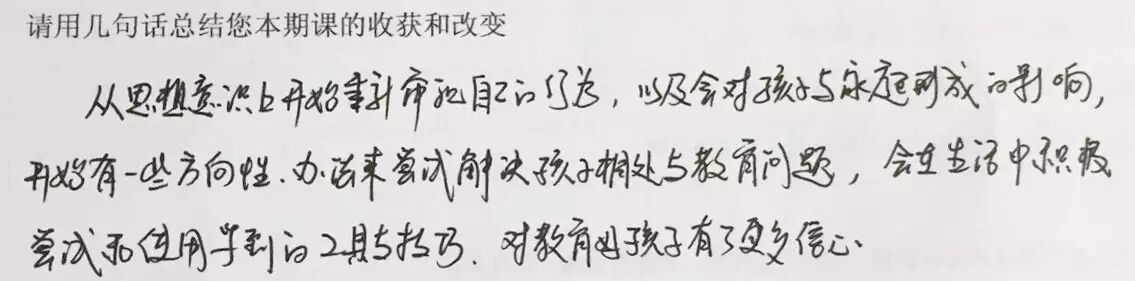 请用几句话总结您本期课的收获和改变
从思想意识上开始重新审视自己的行为，以及会对孩子与家庭形成的影响，
开始有一些方向性、办法来尝试解决孩子相处与教育问题，会在生活中积极
尝试和使用学到的工具与技巧、对教育好孩子有了更多信心.